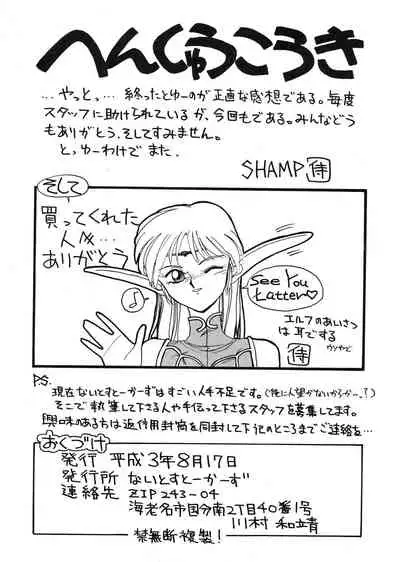 へんしゅうこうき
...やっと,... 終ったとゆーのが正直な感想である。毎度
スタッフに助けられているが、今回もである。みんなどう
もありがとう、そしてすみません。
とっゆーわけで また.
SHAMP 侍
そして
買ってくれた
人々...
ありがとう
♪
See You
Latter♡
エルフのあいさつ
は耳でする
ウソやど
侍
P.S.
現在ないとすとーかーずはすごい人手不足です。(
そこで執筆して下さる人や手伝って下さるスタッフを募集してます。
興味のある方は返信用封筒を同封して下記のところまでご連絡を...
おくづけ
発行 平成3年8月17日
発行所 ないとすとーかーず
連絡先 ZIP 243-04
海老名市国分南2丁目40番1号
川村 和
禁無断複製!